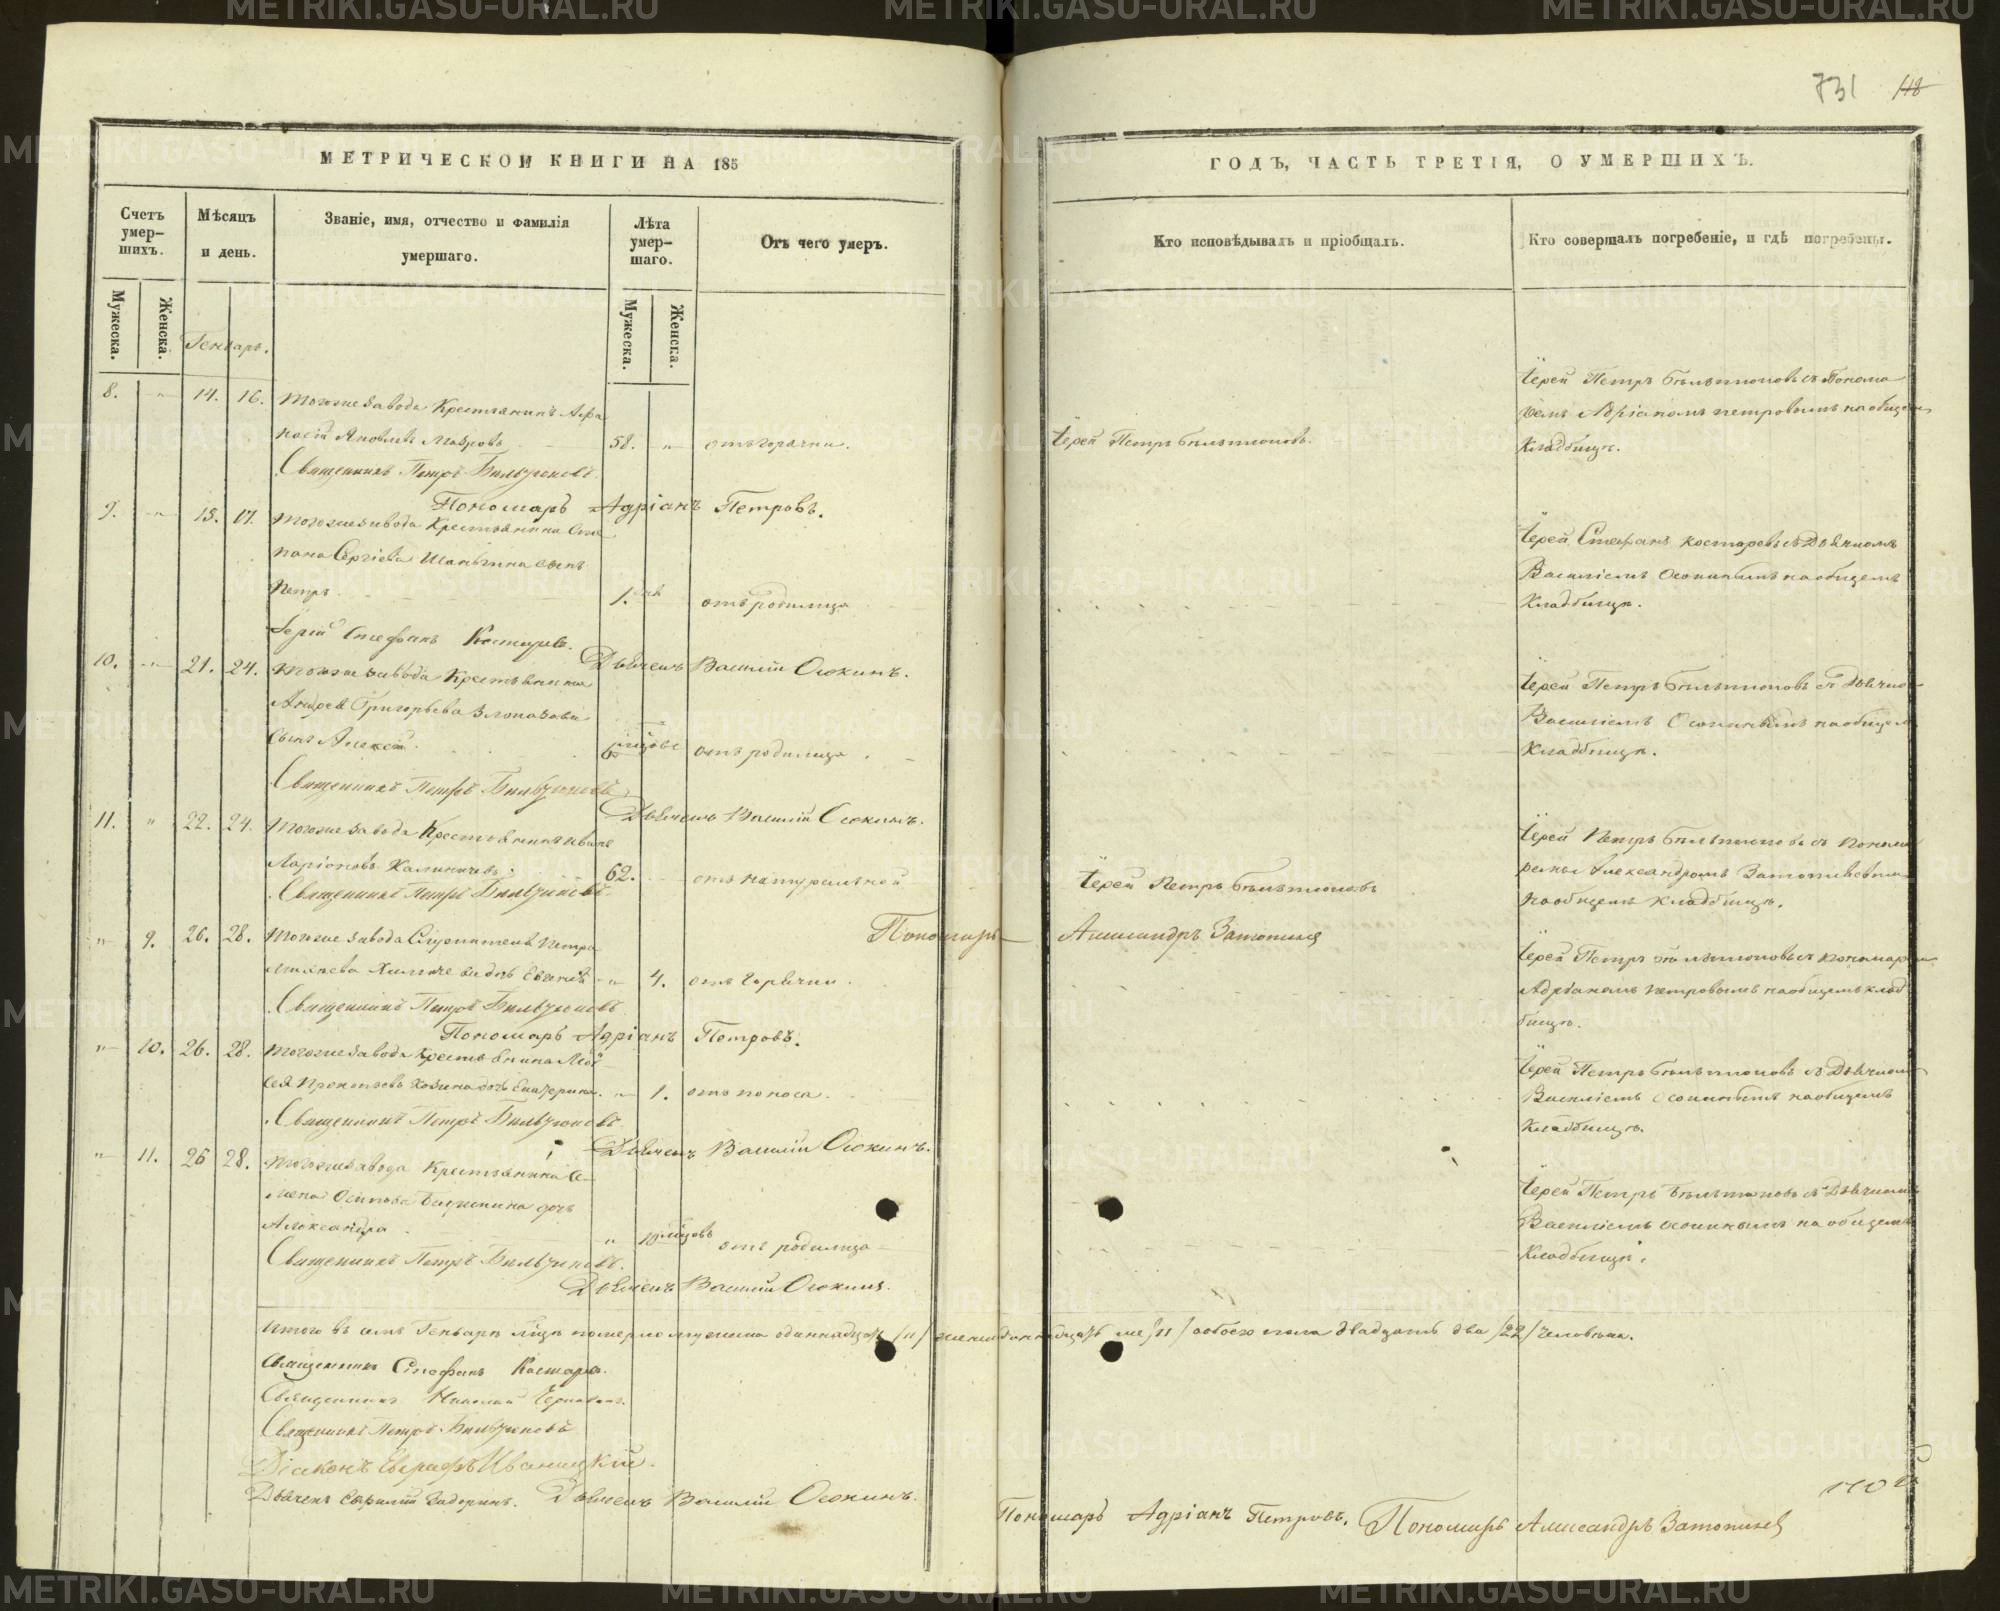 731 118
МЕТРИЧЕСКОЙ КНИГИ НА 185
Счетъ умер-
шихъ.
Мѣсяцъ
и день.
Званіе, имя, отчество и фамилія
умершаго.
Лѣта
умер-
шаго.
Отъ чего умеръ.
Мужеска.
Женска.
Мужеска.
Женска.
Генварь.
8. " 14. 16. Тогоже завода Крестьянинъ Афа
насій Яковлевъ Лавровъ 58. " отъ горячки.
Священникъ Петръ Бѣльтюковъ
Пономарь Адріанъ Петровъ.
9. " 15. 17. Тогоже завода Крестьянина Сте
пана Сергіева Шаньгина сынъ
Петръ 1. отъ родимца
Іерей Стефанъ Костаревъ.
Дьячекъ Василій Осокинъ.
10. " 21. 24. Тогоже завода Крестьянина
Андрея Григорьева Злоказова
сынъ Алексій. отъ родимца
Священникъ Петръ Бѣльтюковъ
Дьячекъ Василій Осокинъ.
11. " 22. 24. Тогоже завода Крестьянинъ Иванъ
Ларіоновъ Калиничевъ. 62. отъ натуральной
Священникъ Петръ Бѣльтюковъ
Пономарь Александръ Затопляев
" 9. 26. 28. Тогоже завода Служителя Петра
дочь Евгенія " 4. отъ горячки.
Священникъ Петръ Бѣльтюковъ
Пономарь Адріанъ Петровъ.
" 10. 26. 28. Тогоже завода Крестьянина Мои
сея Прокопьева Хозина дочь Екатерина. " 1. отъ поноса.
Священникъ Петръ Бѣльтюковъ
Дьячекъ Василій Осокинъ.
" 11. 26 28. Тогоже завода Крестьянина Се-
мена Осипова дочь
Александра " 10 мѣцовъ отъ родимца
Священникъ Петръ Бѣльтюковъ.
Дьячекъ Василій Осокинъ.
Итого въ семъ Генварѣ м͠цѣ померло мужеска одиннадцать /11/ женска одиннадцать же /11/ обоего пола двадцать два /22/ человѣка.
Священникъ Стефанъ Костаревъ.
Священникъ Николай
Священникъ Петръ Бѣльтюковъ
Діаконъ Евграфъ Иваницкій.
Дьячекъ Дьячекъ Василій Осокинъ.
ГОДЪ, ЧАСТЬ ТРЕТІЯ, О УМЕРШИХЪ.
Кто исповѣдывалъ и пріобщалъ.
Кто совершалъ погребеніе, и гдѣ погребены.
Іерей Петръ Бѣльтюковъ съ Понома
ремъ Адріаномъ Петровымъ на общемъ
Іерей Петръ Бѣльтюковъ. Кладбищѣ.
Іерей Стефанъ Костаревъ съ Дьячкомъ
Василіемъ Осокинымъ на общемъ
Кладбищѣ.
Іерей Петръ Бѣльтюковъ съ Дьячкомъ
Василіемъ Осокинымъ на общемъ
Кладбищѣ.
Іерей Петръ Бѣльтюковъ съ Понома
ремъ Александромъ
Іерей Петръ Бѣльтюковъ
на общемъ Кладбищѣ.
Іерей Петръ Бѣльтюковъ съ Пономаремъ
Адріаномъ Петровымъ на общемъ клад
бищѣ.
Іерей Петръ Бѣльтюковъ съ Дьячкомъ
Василіемъ Осокинымъ на общемъ
Кладбищѣ.
Іерей Петръ Бѣльтюковъ съ Дьячкомъ
Василіемъ Осокинымъ на общемъ
Кладбищѣ.
Пономарь Адріанъ Петровъ. Пономарь Александръ
METRIKI.GASO-URAL.RU